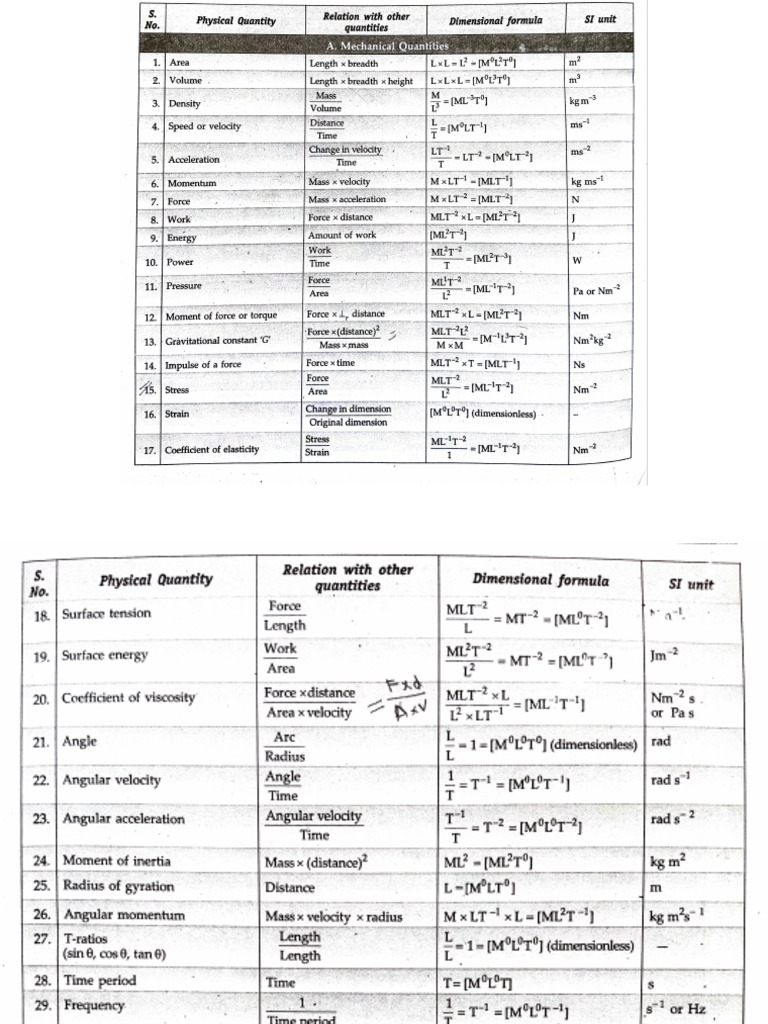 S. No. Physical Quantity Relation with other quantities Dimensional formula SI unit
A. Mechanical Quantities
1. Area Length × breadth L × L = L² = [M⁰L²T⁰] m²
2. Volume Length × breadth × height L × L × L = [M⁰L³T⁰] m³
3. Density Mass / Volume M / L³ = [ML⁻³T⁰] kg m⁻³
4. Speed or velocity Distance / Time L / T = [M⁰LT⁻¹] ms⁻¹
5. Acceleration Change in velocity / Time LT⁻¹ / T = LT⁻² = [M⁰LT⁻²] ms⁻²
6. Momentum Mass × velocity M × LT⁻¹ = [MLT⁻¹] kg ms⁻¹
7. Force Mass × acceleration M × LT⁻² = [MLT⁻²] N
8. Work Force × distance MLT⁻² × L = [ML²T⁻²] J
9. Energy Amount of work [ML²T⁻²] J
10. Power Work / Time ML²T⁻² / T = [ML²T⁻³] W
11. Pressure Force / Area ML¹T⁻² / L² = [ML⁻¹T⁻²] Pa or Nm⁻²
12. Moment of force or torque Force × ⊥ distance MLT⁻² × L = [ML²T⁻²] Nm
13. Gravitational constant 'G' Force × (distance)² / Mass × mass MLT⁻²L² / M × M = [M⁻¹L³T⁻²] Nm²kg⁻²
14. Impulse of a force Force × time MLT⁻² × T = [MLT⁻¹] Ns
15. Stress Force / Area MLT⁻² / L² = [ML⁻¹T⁻²] Nm⁻²
16. Strain Change in dimension / Original dimension [M⁰L⁰T⁰] (dimensionless) –
17. Coefficient of elasticity Stress / Strain ML⁻¹T⁻² / 1 = [ML⁻¹T⁻²] Nm⁻²
S. No. Physical Quantity Relation with other quantities Dimensional formula SI unit
18. Surface tension Force / Length MLT⁻² / L = MT⁻² = [ML⁰T⁻²]
19. Surface energy Work / Area ML²T⁻² / L² = MT⁻² = [ML⁰T⁻²] Jm⁻²
20. Coefficient of viscosity Force × distance / Area × velocity = F×d / A×V MLT⁻² × L / L² × LT⁻¹ = [ML⁻¹T⁻¹] Nm⁻² s or Pa s
21. Angle Arc / Radius L / L = 1 = [M⁰L⁰T⁰] (dimensionless) rad
22. Angular velocity Angle / Time 1 / T = T⁻¹ = [M⁰L⁰T⁻¹] rad s⁻¹
23. Angular acceleration Angular velocity / Time T⁻¹ / T = T⁻² = [M⁰L⁰T⁻²] rad s⁻²
24. Moment of inertia Mass × (distance)² ML² = [ML²T⁰] kg m²
25. Radius of gyration Distance L = [M⁰LT⁰] m
26. Angular momentum Mass × velocity × radius M × LT⁻¹ × L = [ML²T⁻¹] kg m²s⁻¹
27. T-ratios (sin θ, cos θ, tan θ) Length / Length L / L = 1 = [M⁰L⁰T⁰] (dimensionless) –
28. Time period Time T = [M⁰L⁰T] s
29. Frequency 1 / Time period 1 / T = T⁻¹ = [M⁰L⁰T⁻¹] s⁻¹ or Hz